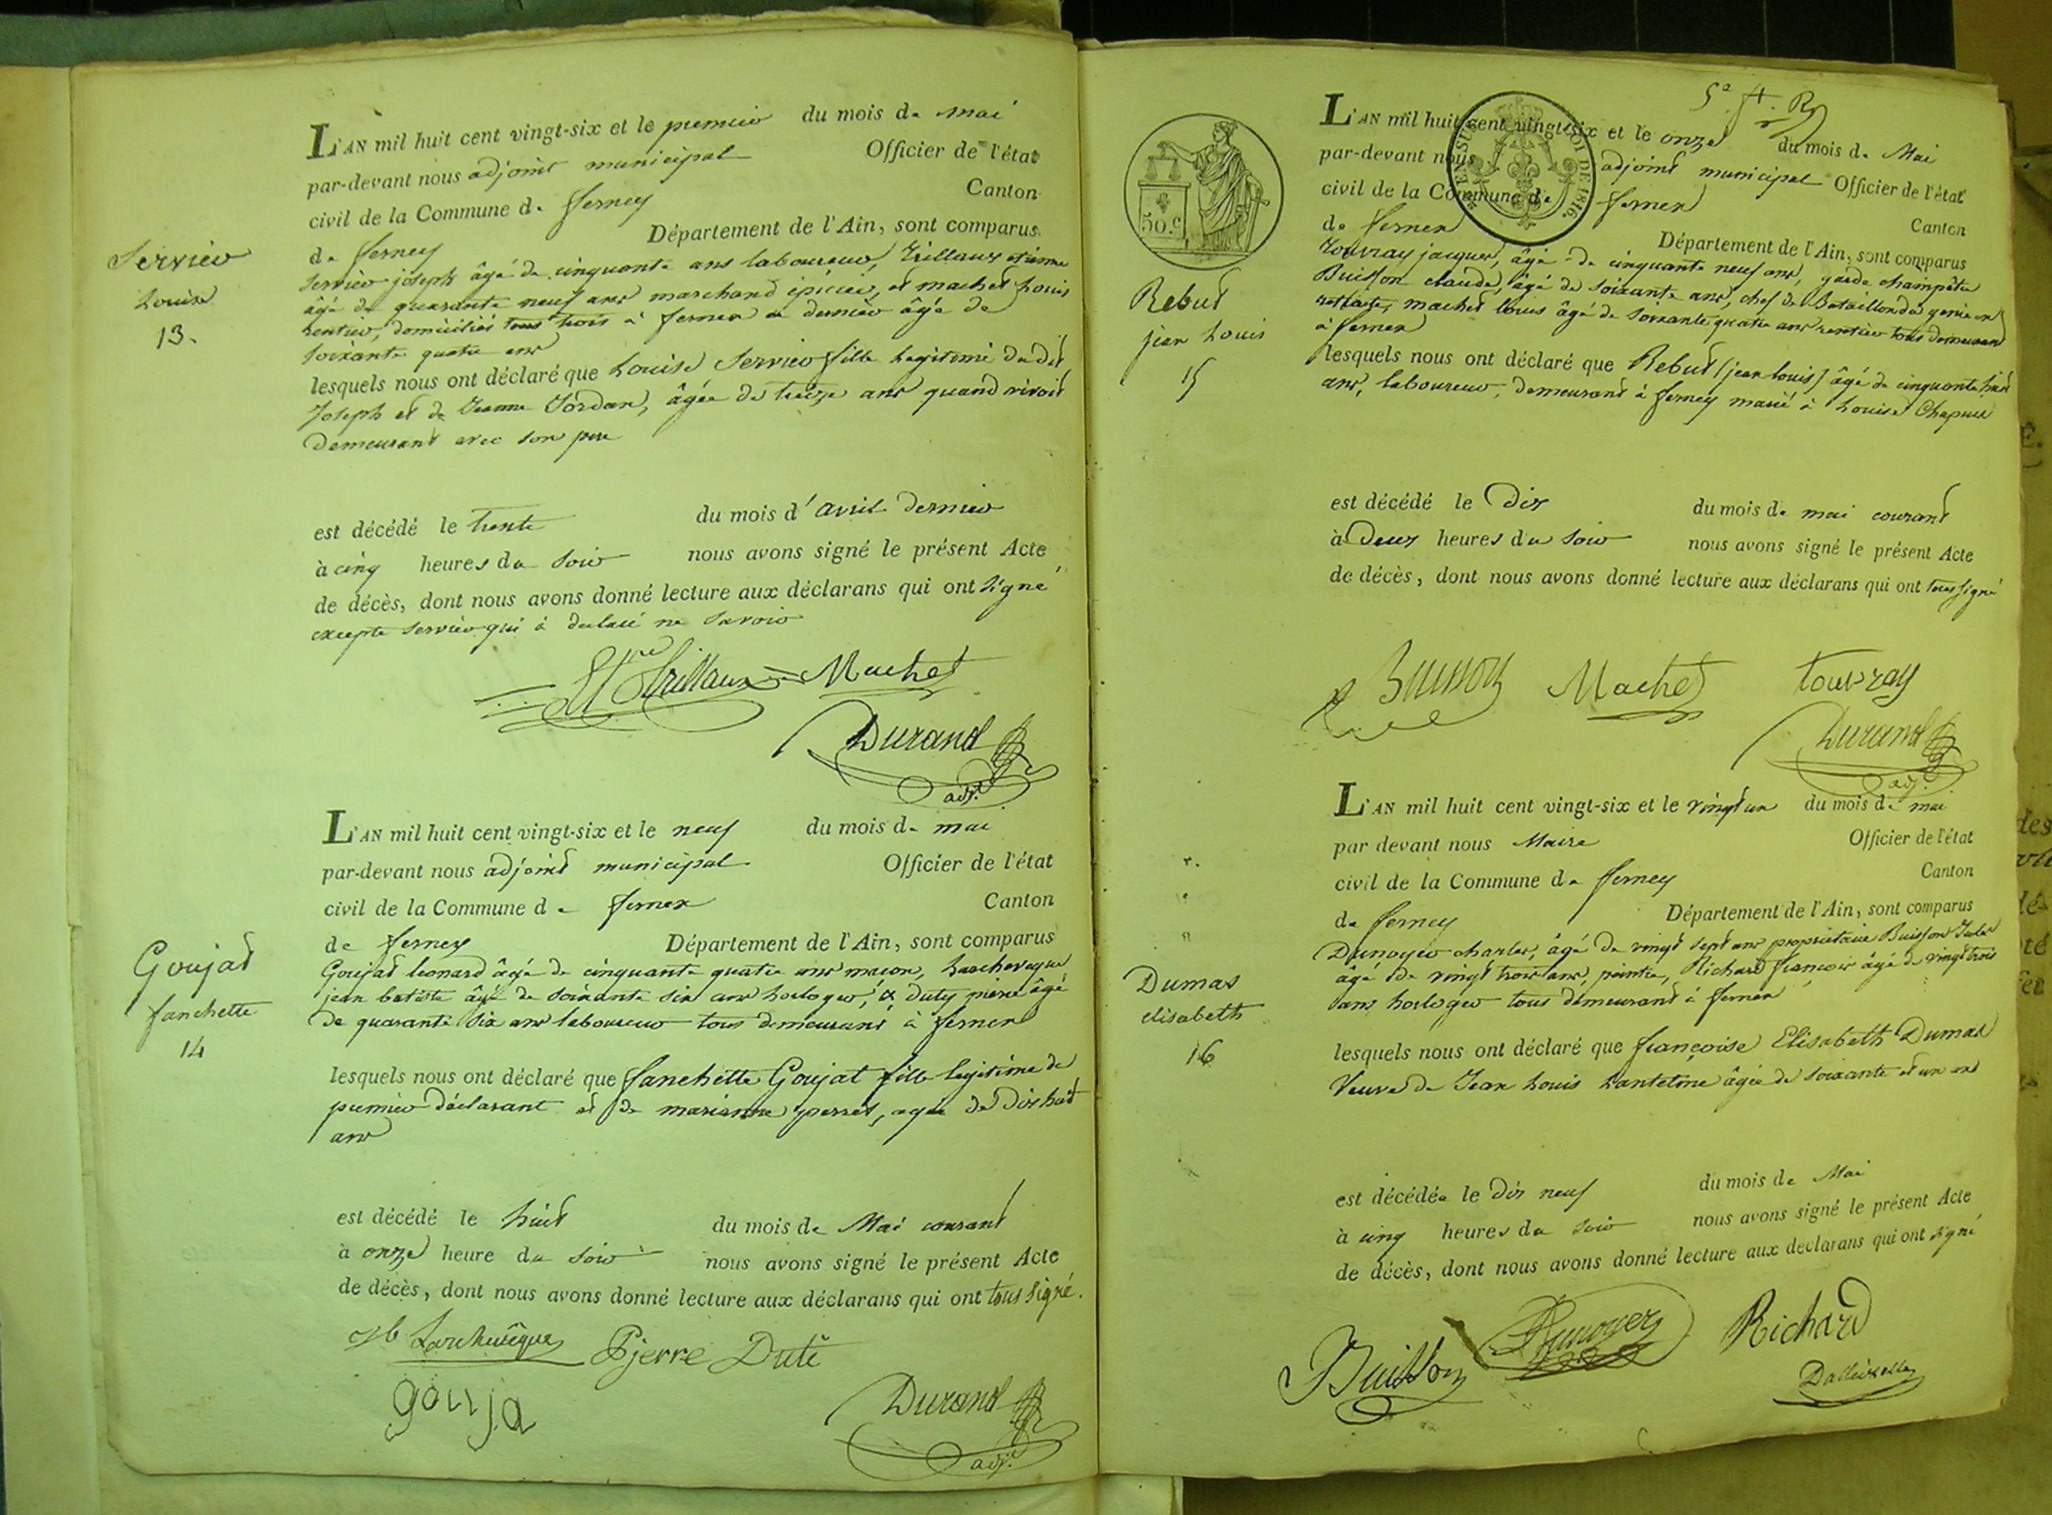 L'AN mil huit cent vingt-six et le premier du mois de mai
par-devant nous adjoint municipal Officier de l'état
civil de la Commune de ferney Canton
de ferney Département de l'Ain, sont comparus
Servier joseph âgé de cinquante ans laboureur, Trillaux etienne
âgé de quarante neuf ans marchand épicier, et machet Louis
rentier, domiciliés tous trois à fernex ce dernier âgé de
soixante quatre ans
lesquels nous ont déclaré que Louise Servier fille legitime du dit
Joseph et de Jeanne Jordan, âgée de treize ans quand vivoit
demeurant avec son pere
est décédé le trente du mois d'avril dernier
à cinq heures du soir nous avons signé le présent Acte
de décès, dont nous avons donné lecture aux déclarans qui ont signé
excepté Servier qui à declaré ne savoir
Servier
Louise
13.
Etne Trillaux Machet
Durand
adjt.
L'AN mil huit cent vingt-six et le neuf du mois de mai
par-devant nous adjoint municipal Officier de l'état
civil de la Commune de fernex Canton
de ferney Département de l'Ain, sont comparus
Goujat leonard âgé de cinquante quatre ans macon, Larcheveque
jean batiste âgé de soixante six ans horloger, & duty pierre âgé
de quarante six ans laboureur tous demeurant à fernex
lesquels nous ont déclaré que fanchette Goujat fille legitime de
premier déclarant et de marianne perret, agée de dix huit
ans
est décédé le huit du mois de Mai courant
à onze heure du soir nous avons signé le présent Acte
de décès, dont nous avons donné lecture aux déclarans qui ont tous signé.
Goujat
fanchette
14
Jb Larchevêque Pjerre Duti
gouja
Durand
adjt.
5e. ft. R
50.C
EN SUS LOI DE 1816.
L'AN mil huit cent vingt-six et le onze du mois de Mai
par-devant nous adjoint municipal Officier de l'état
civil de la Commune de fernex Canton
de fernex Département de l'Ain, sont comparus
Touvray jacques, âgé de cinquante neuf ans, garde champêtre
Buisson claude, âgé de soixante ans, chef de Bataillon du genie en
retraite, machet louis âgé de soixante quatre ans rentier tous demeurant
à fernex
lesquels nous ont déclaré que Rebut (jean louis) âgé de cinquante huit
ans, laboureur, demeurant à ferney marié à Louise Chapuis
est décédé le Dix du mois de mai courant
à Deux heures du soir nous avons signé le présent Acte
de décès, dont nous avons donné lecture aux déclarans qui ont tous signé
Rebut
jean Louis
15
Buisson Machet touvray
Durand
adj.
L'AN mil huit cent vingt-six et le vingt un du mois de mai
par devant nous Maire Officier de l'état
civil de la Commune de ferney Canton
de ferney Département de l'Ain, sont comparus
Dunoyer charles, âgé de vingt sept ans proprietaire Buisson Jules
âgé de vingt trois ans, peintre, Richard françois âgé de vingt trois
ans horloger tous demeurant à fernex
lesquels nous ont déclaré que françoise Elisabeth Dumas
Veuve de Jean Louis âgée de soixante et un ans
est décédée le dix neuf du mois de Mai
à cinq heures du soir nous avons signé le présent Acte
de décès, dont nous avons donné lecture aux declarans qui ont signé
Dumas
elisabeth
16
Buisson Dunoyer Richard